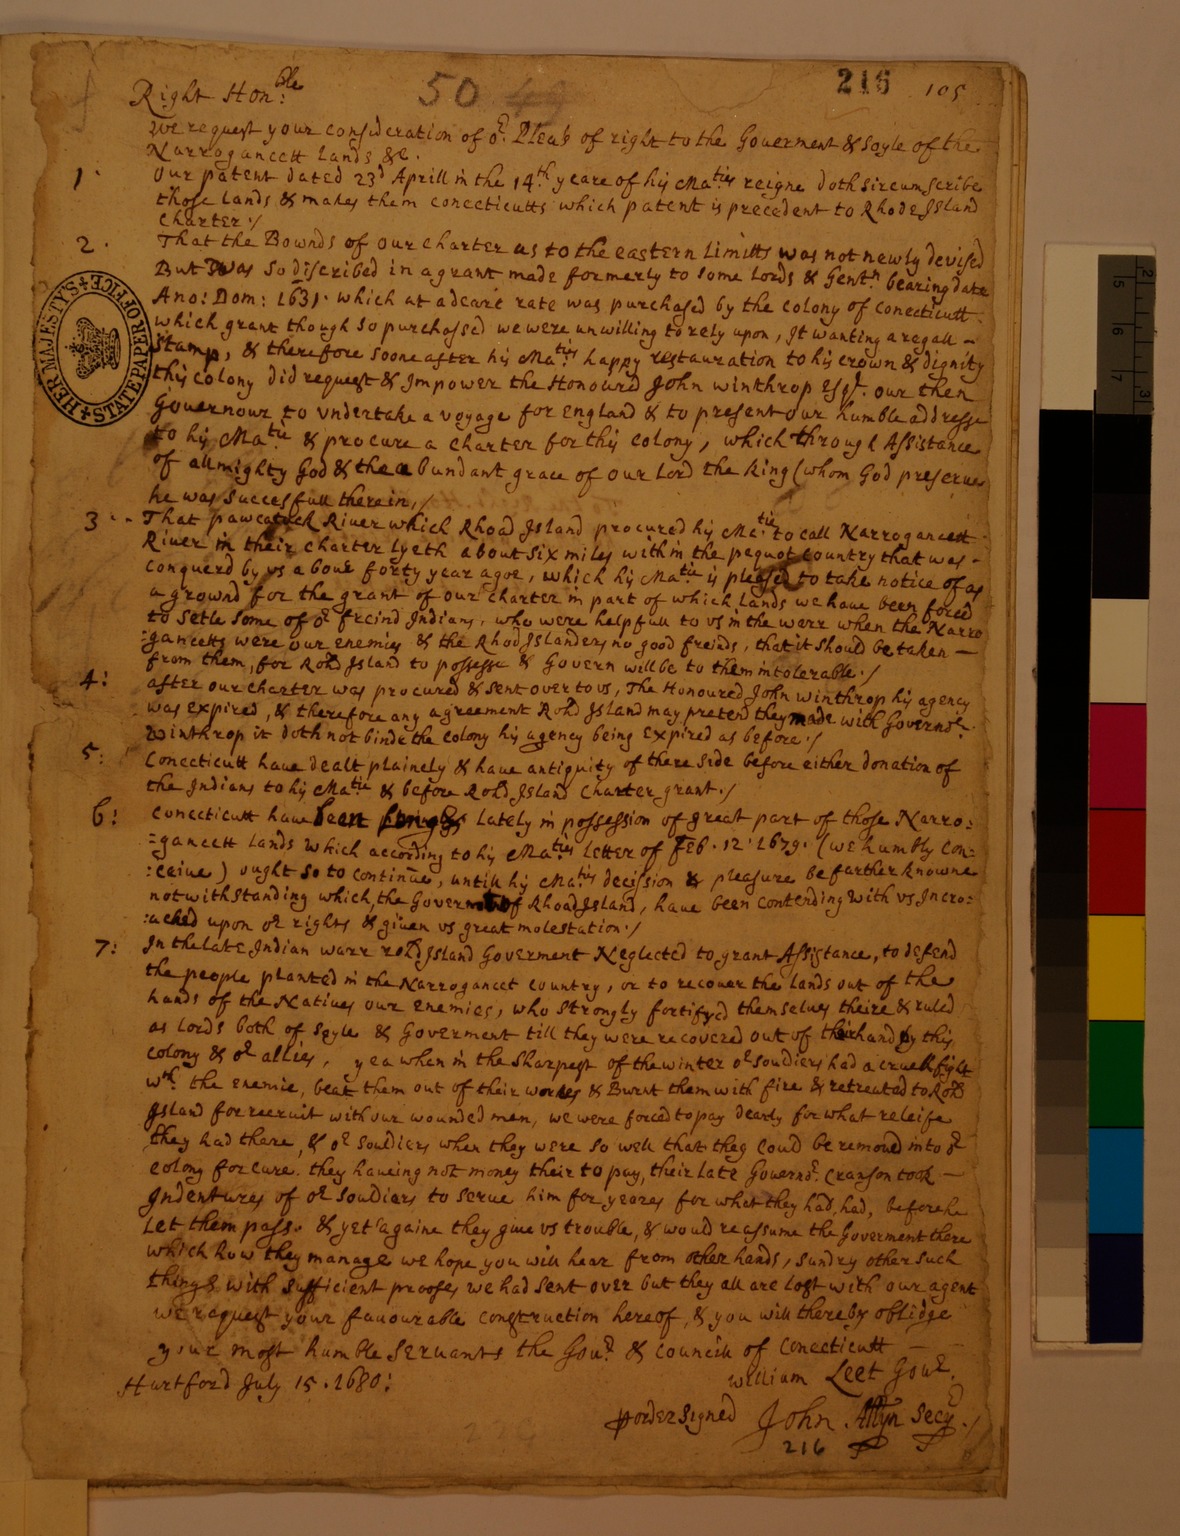 50 49
216 105
Right Hon:ble
We request your consideration of or. Pleas of right to the Goverment & Soyle of the
Narrogancett Lands &c.
1. Our patent dated 23d Aprill in the 14th yeare of his Maties reigne doth sircumscribe
those lands & makes them conecticutts which patent is precedent to Rhode Island
Charter:/
2. That the Bownds of our charter as to the eastern Limitts was not newly devised
But was so discribed in a grant made formerly to some Lords & Gentn bearing date
Ano: Dom: 1631. which at a deare rate was purchased by the colony of Conecticutt.
which grant though so purchassed we were unwilling to rely upon, It wanting a regall -
Stamp, & therefore soone after his Maties happy restauration to his crown & dignity
this Colony did request & Impower the Honoured John Winthrop Esqr. our then
Governour to vndertake a voyage for England & to present our humble addresse
to his Matie & procure a charter for this colony, which through Assistance
of allmighty God & the abundant grace of our Lord the King (whom God preserve
he was Succesfull therein,/
3. - That pawcatuck River which Rhoad Island procured his Matie to call Narrogancett
River in their Charter lyeth about six miles within the pequot country that was -
conquerd by vs aboue forty year agoe, which his Matie is pleased to take notice of as
a grownd for the grant of our Charter in part of which lands we have been forced
to Setle some of or freind Indians, who were helpfull to vs in the warr when the Narro
=gancetts were our enemies & the Rhod Islanders no good freinds, that it should be taken -
from them, for Rohd Island to possesse & Govern will be to them intolerable./
4: after our Charter was procured & sent over to vs, The Honoured John Winthrop his agency
was Expired, & therefore any agreement Rohd Island may pretend they made with Governor.
Winthrop it doth not binde the colony his agency being Expired as before:/
5: Conecticutt have dealt plainely & have antiquity of there side before either donation of
the Indians to his Matie & before Rohd Island Charter grant./
6: Conecticutt have been lately in possession of great part of those Narro:
=gancett lands which according to his Maties letter of Feb. 12: 1679. (we humbly Con=
:ceive) ought so to continue, untill his Maties decission & pleasure be farther knowne
notwithstanding which, the Goverment of Rhoad Island, have been contending with vs Incro:
:ached upon or rights & given vs great molestation:/
7: In the late Indian warr rohd Island Goverment Neglected to grant Assistance, to defend
the people planted in the Narrogancet Country, or to recover the lands out of the
hands of the Natives our enemies, who strongly fortifyed themselves theire & ruled
as Lords both of soyle & Goverment till they were recovered out of their hand by this
colony & or allies, yea when in the sharpest of the winter or souldiers had a cruell fight
wth. the Enemie, beat them out of their workes & Burnt them with fire & retreated to Rohd
Island for recruit with our wounded men, we were forced to pay dearly for what releife
they had there, & or souldiers when they were so well that they could be removed into or
colony for cure. they haveing not money their to pay, their late Governor. Cranson took -
Indentures of or souldiers to serve him for yeares for what they had had, before he
Let them pass. & yet againe they give vs trouble, & would reassume the Goverment there
which how they manage we hope you will hear from other hands, sundry other such
things with sufficient proofes we had sent over but they all are lost with our agent
we request your favourable construction hereof, & you will thereby oblidge
your most humble Servants the Gour & Councill of Conecticutt -
Hartford July 15. 1680: William Leet Gour.
p order Signed John Allyn Secy./
216
HER MAJESTY'S STATE PAPER OFFICE